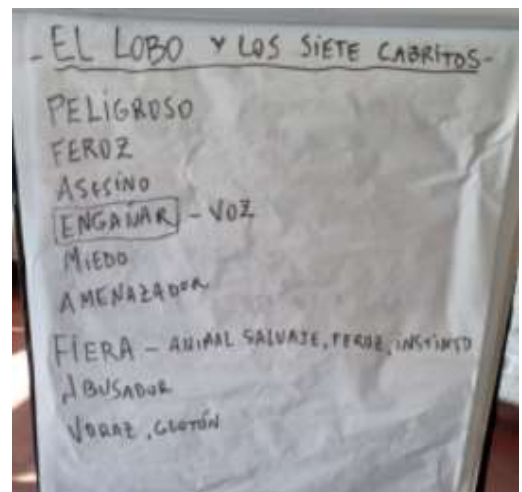 - EL LOBO Y LOS SIETE CABRITOS -
PELIGROSO
FEROZ
ASESINO
ENGAÑAR - VOZ
MIEDO
AMENAZADOR
FIERA - ANIMAL SALVAJE, FEROZ, INSTINTO
ABUSADOR
VORAZ, GLOTÓN